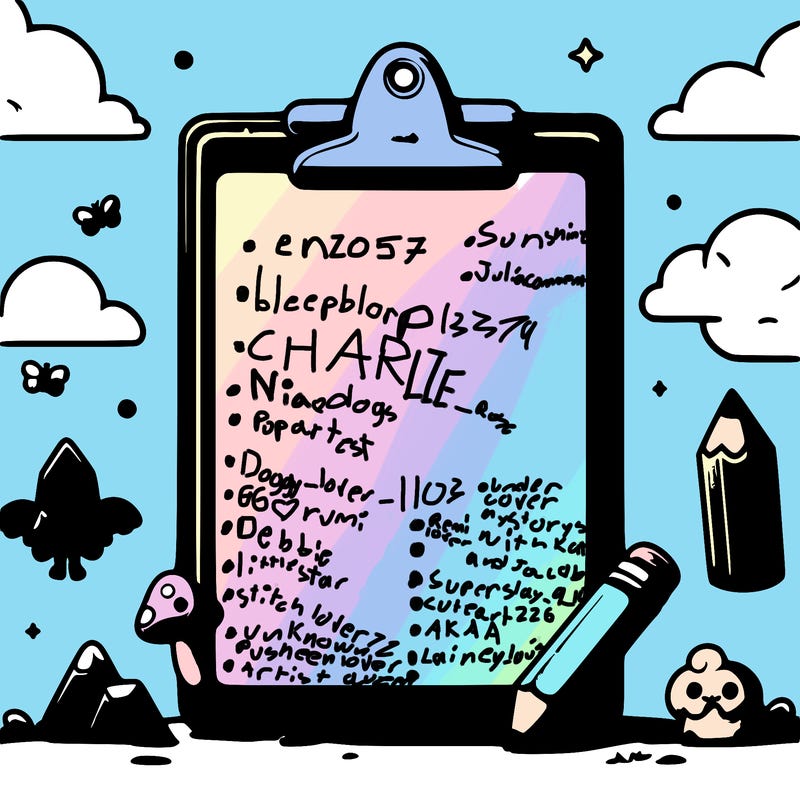 • enzo57
• bleepblorp13374
• CHARLIE_Rose
• Niaedogs
• Popartest
• Doggy_lover_1103
• GG♡rumi
• Debbie
• littlestar
• stitch lover22
• unknown22
• Pusheenlover
• Artist
• Sunshine
• under
cover
mystorys
with
and
• Remi
lover
• Superslay_
• cuteart226
• AKAA
• Laineylou